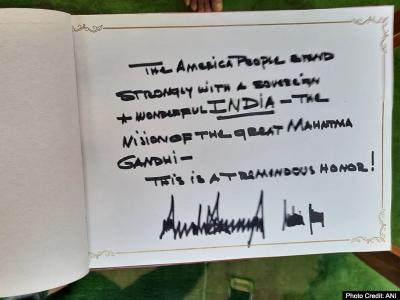 THE AMERICA PEOPLE STAND
STRONGLY WITH A SOVEREIGN
+ WONDERFUL INDIA - THE
VISION OF THE GREAT MAHATMA
GANDHI -
THIS IS A TREMENDOUS HONOR!
Photo Credit: ANI